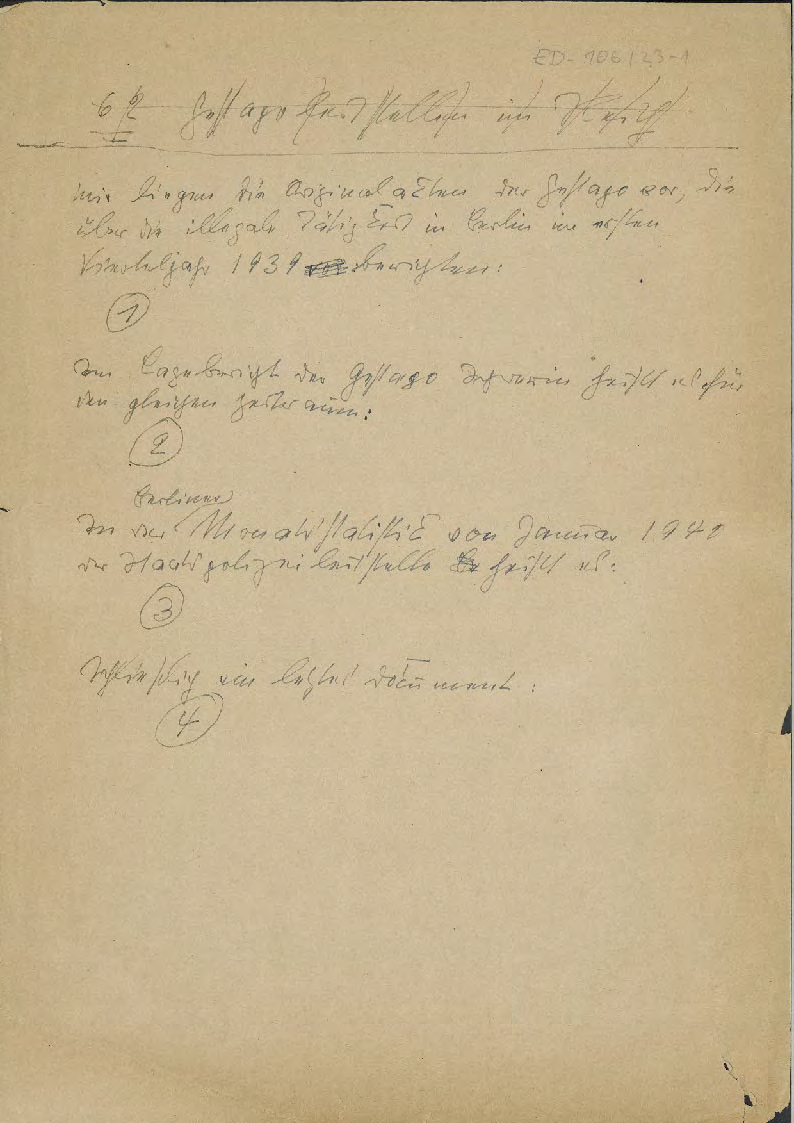 ED-106/23-1
Gestapo leitstellen im Reich
mir liegen die Originalakten der Gestapo vor, die
über die illegale Tätigkeit in Berlin im ersten
Vierteljahr 1939 berichten:
1
Im Lagebericht der Gestapo Schwerin heißt es für
den gleichen Zeitraum:
2
Berliner
In der Monatsstatistik von Januar 1940
der Staatspolizeileitstelle heißt es:
3
Schließlich ein letztes Document:
4